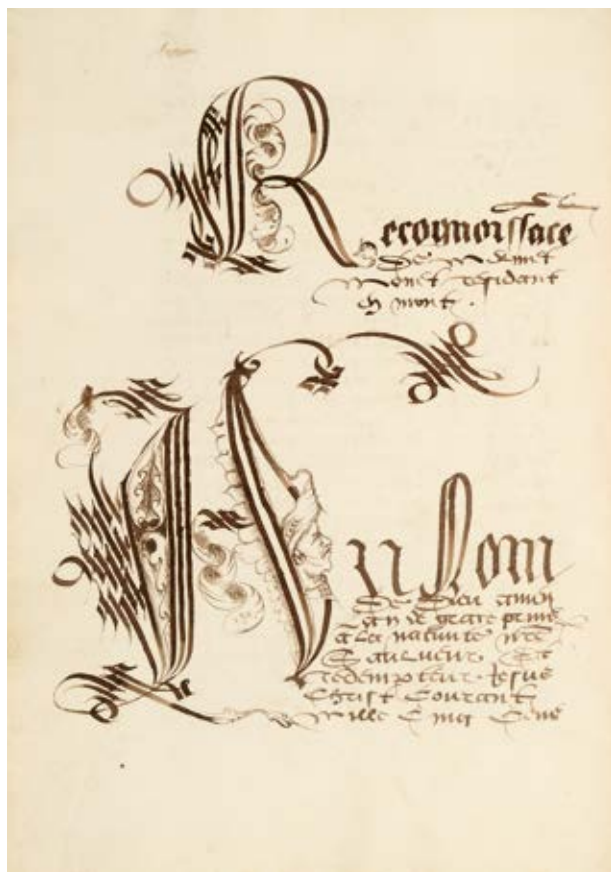 Reconnoissāce
De
Monet residant
en mont.
Au nom
De Dieu amen
an de grace prins
a la natiuite nr̄e
Saulueur Et
redempteur Jesus
Christ Courant
Mille Cinq Cens